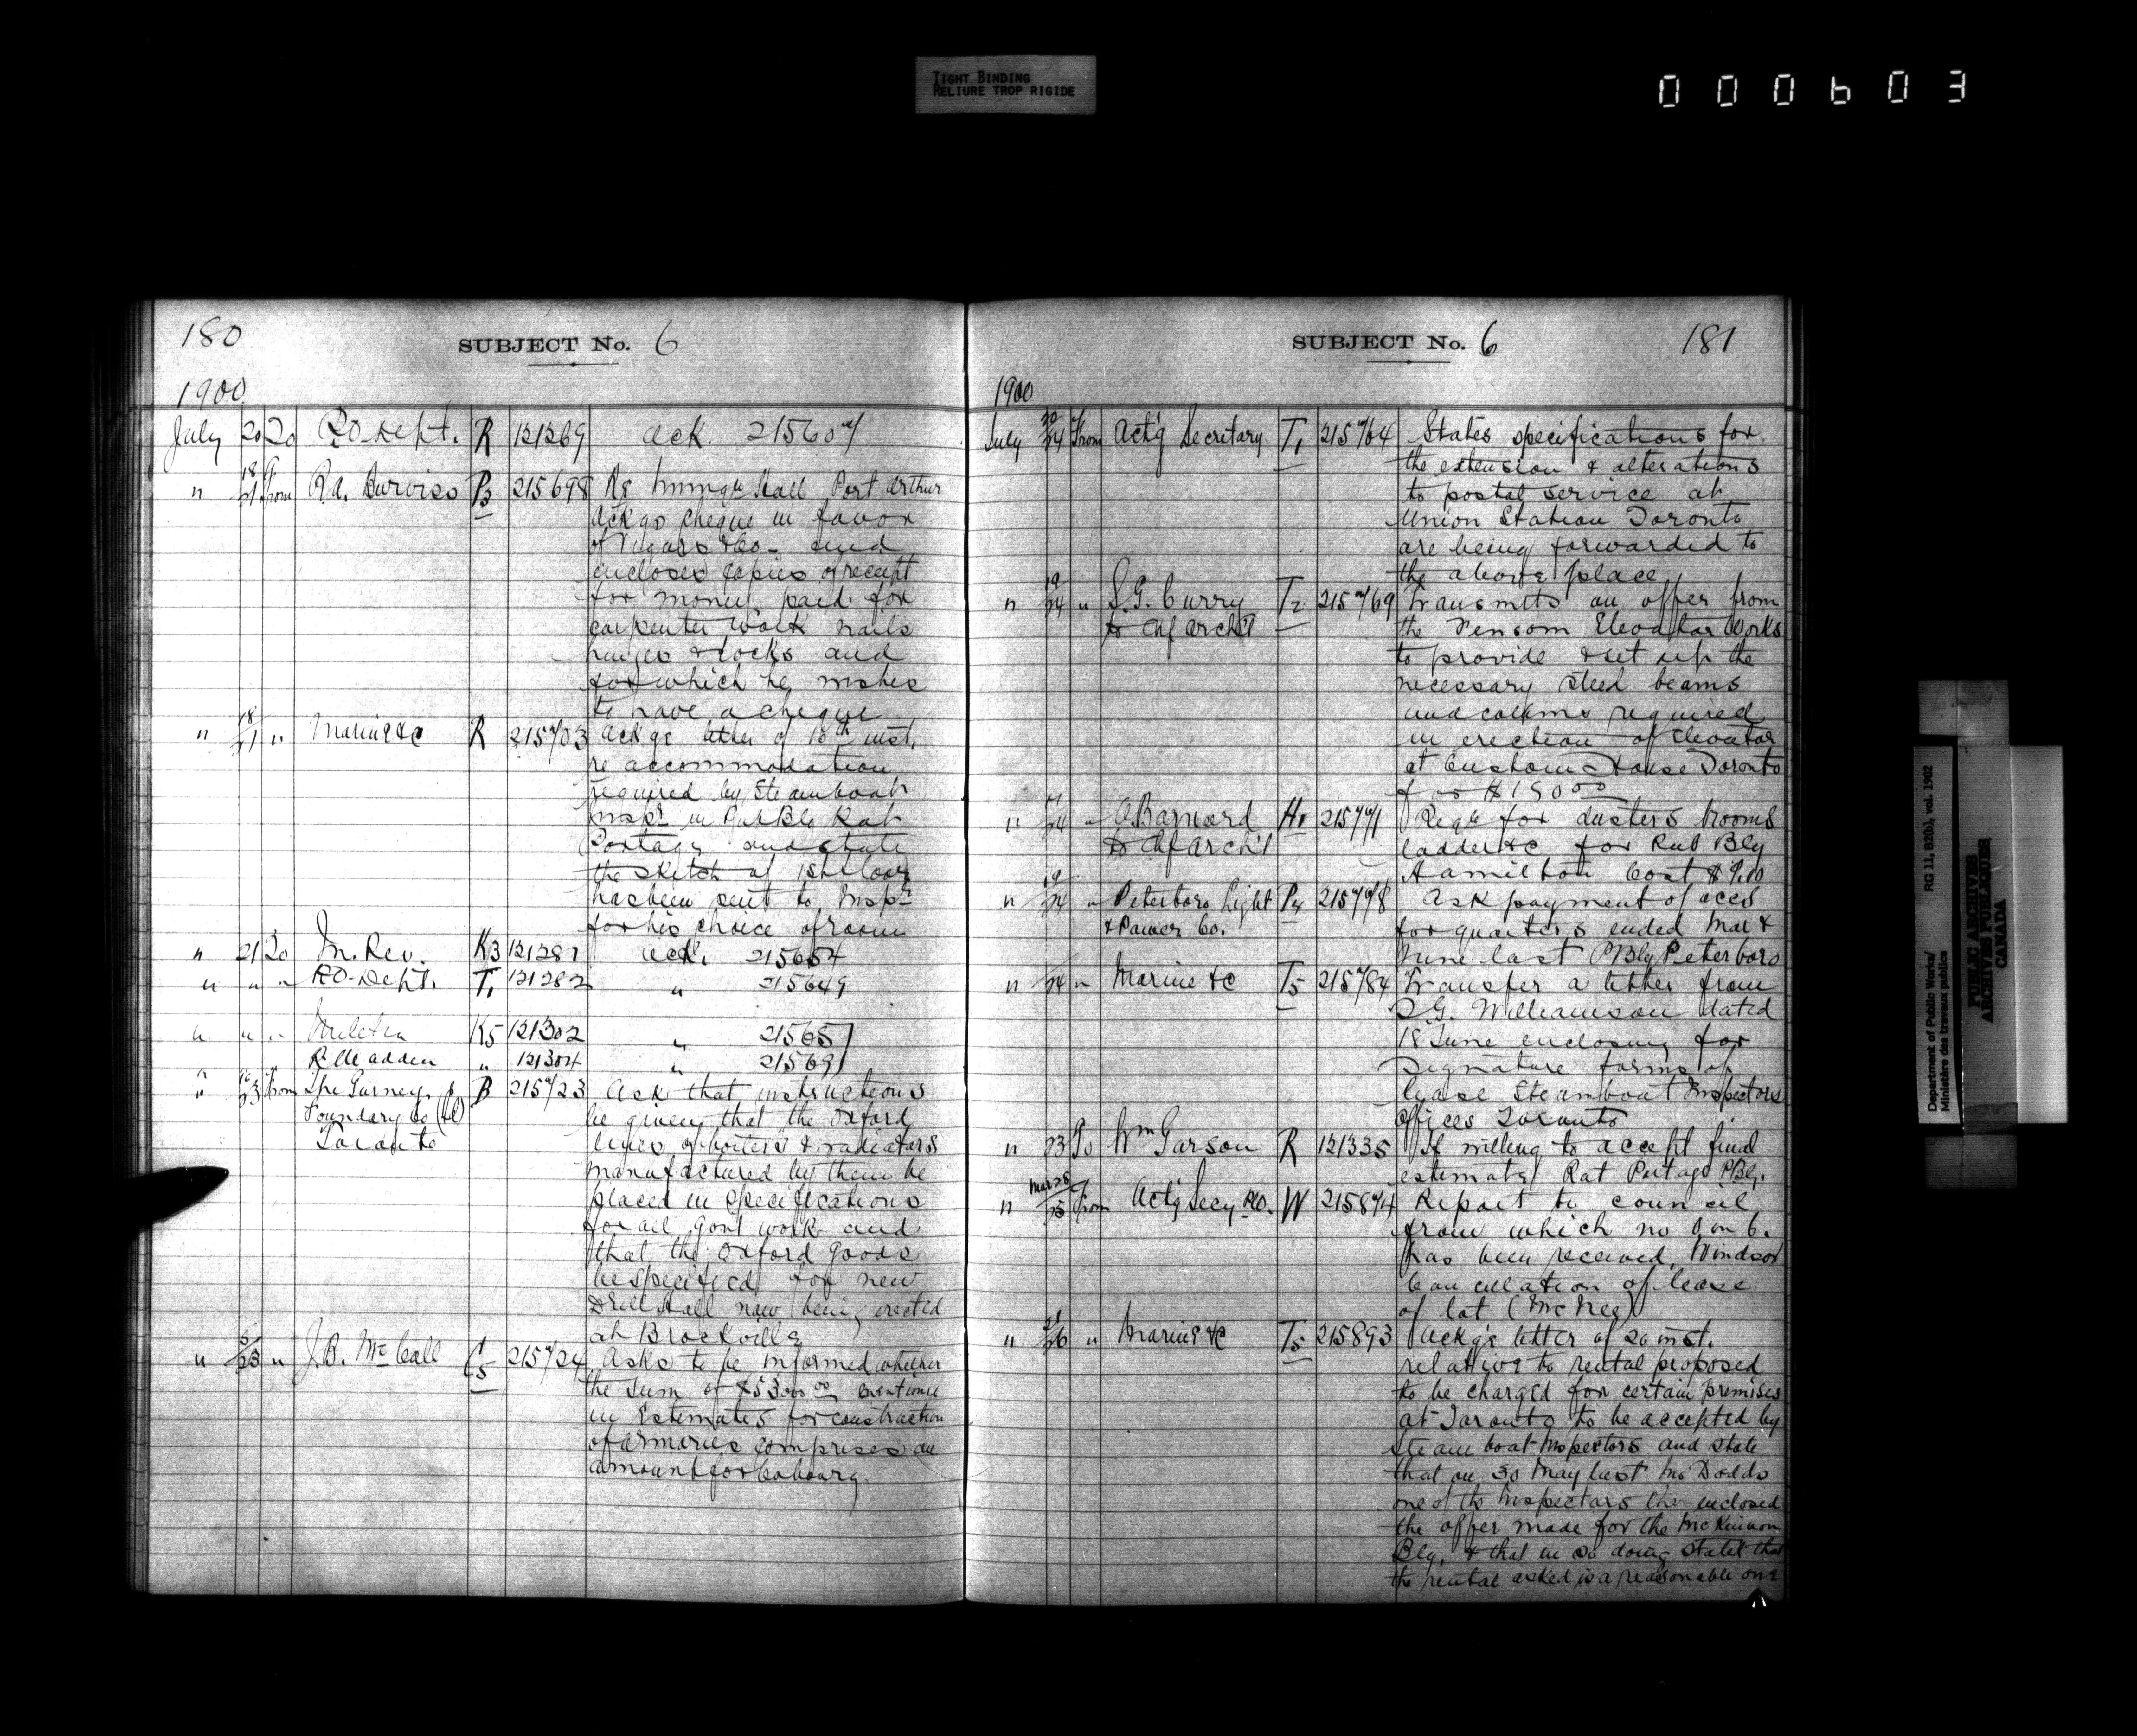 TIGHT BINDING
RELIURE TROP RIGIDE
000603
180
SUBJECT No. 6
1900
July 20 To P.O. Dept. R 121269 ack. 215607
" 18/21 From R.A. Burriss P3 215698 Re Immign Hall Port Arthur
Ackgs cheque in favor
of Vigars & Co. and
encloses copies of receipt
for money paid for
carpenter work nails
hinges & locks and
for which he wishes
to have a cheque
" 18/21 " Marine &c R 215703 Ackgs letter of 18th inst.
re accommodation
required by Steamboat
Inspr in Pub Blg Rat
Portage and state
the sketch of 1st floor
has been sent to Inspr
for his choice of room
" 21 To In. Rev. K3 121281 ack. 215654
" " " P.O. Dept. T1 121282 " 215649
" " " Militia K5 121302 " 215657
" " " R. Madden " 121304 " 215691
" 23 From The Gurney
Foundry Co (Ld)
Toronto
B 215723 Ask that instructions
be given that the Oxford
lines of boilers & radiators
manufactured by them be
placed in specifications
for all Gov't work and
that the Oxford goods
be specified for new
Drill Hall now being erected
at Brockville
" 23 " J.B. McCall C5 215724 Asks to be informed whether
the sum of $53000.00
in Estimates for construction
of armories comprises an
amount for Cobourg.
SUBJECT No. 6
181
1900
July 20/24 From Act'g Secretary T1 215764 States specifications for
the extension & alterations
to postal service at
Union Station Toronto
are being forwarded to
the above place
" 19/24 " S.G. Curry T2 215769 Transmits an offer from
to Chf Archt the Fensom Elevator Works
to provide & set up the
necessary steel beams
and columns required
in erection of elevator
at Custom House Toronto
for $150.00
" 24 " O Barnard H1 215771 Reqn for dusters brooms
to Chf Archt ladder &c for Pub Blg
Hamilton Cost $9.10
" 19/24 " Peterboro Light P4 215778 Ask payment of accs
& Power Co. for quarters ended Mar &
June last P Blg Peterboro
" 24 " Marine &c T5 215784 Transfer a letter from
G. Williamson dated
18 June enclosing for
signature forms of
lease Steamboat Inspectors
Offices Toronto
" 23 To Wm Garson R 121335 If willing to accept final
estimate Rat Portage P Blg.
" Mar 28/25 From Act'g Secy P.O. W 215874 Report to council
from which no O in C.
has been received, Windsor
Cancellation of lease
of lot (McNee)
" 21/26 " Marine &c T5 215893 Ackg's letter of 20 inst.
relative to rental proposed
to be charged for certain premises
at Toronto to be accepted by
Steamboat Inspectors and state
that on 30 May last Mr Dodds
one of the Inspectors enclosed
the offer made for the McKinnon
Blg, & that in so doing stated that
the rental asked is a reasonable one
Department of Public Works/
Ministère des travaux publics
RG 11, B2(b), vol. 1902
PUBLIC ARCHIVES
ARCHIVES PUBLIQUES
CANADA